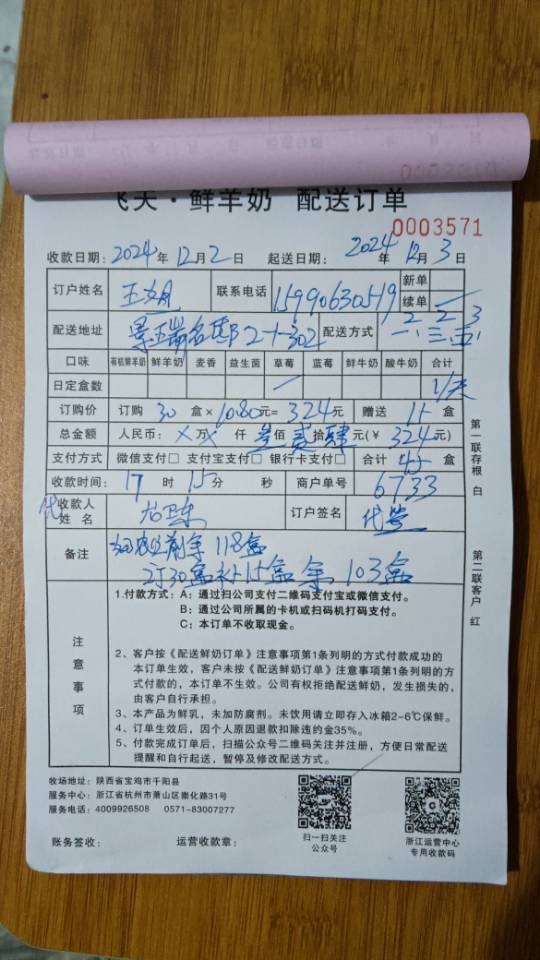 飞天·鲜羊奶 配送订单
0003571
收款日期：2024年12月2日 起送日期：2024年12月3日
订户姓名 联系电话 15990630519 新单
续单
配送地址 景瑞名邸2-1-302 配送方式 一、三、五
口味 有机鲜羊奶 鲜羊奶 麦香 益生菌 草莓 蓝莓 鲜牛奶 酸牛奶 合计
日定盒数 1/天
订购价 订购 30 盒×10.80元=324元 赠送 15 盒
总金额 人民币：×万×仟叁佰贰拾肆元(￥324元)
支付方式 微信支付□ 支付宝支付□ 银行卡支付□ 合计 45 盒
收款时间：17时15分 秒 商户单号 6733
代收款人姓名 订户签名 代签
备注 剩余 118盒
订30盒补15盒 余 103盒
注意事项
1.付款方式：A：通过扫公司支付二维码支付宝或微信支付。
B：通过公司所属的卡机或扫码机打码支付。
C：本订单不收取现金。
2、客户按《配送鲜奶订单》注意事项第1条列明的方式付款成功的
本订单生效，客户未按《配送鲜奶订单》注意事项第1条列明的方
式付款的，本订单不生效。公司有权拒绝配送鲜奶，发生损失的，
由客户自行承担。
3、本产品为鲜乳，未加防腐剂。未饮用请立即存入冰箱2-6℃保鲜。
4、订单生效后，因个人原因退款扣除违约金35%。
5、付款完成订单后，扫描公众号二维码关注并注册，方便日常配送
提醒和自行起送，暂停及修改配送方式。
第一联存根 白
第二联客户 红
牧场地址：陕西省宝鸡市千阳县
服务中心：浙江省杭州市萧山区崇化路31号
服务电话：4009926508 0571-83007277
扫一扫关注
公众号
浙江运营中心
专用收款码
账务签收： 运营收款章：